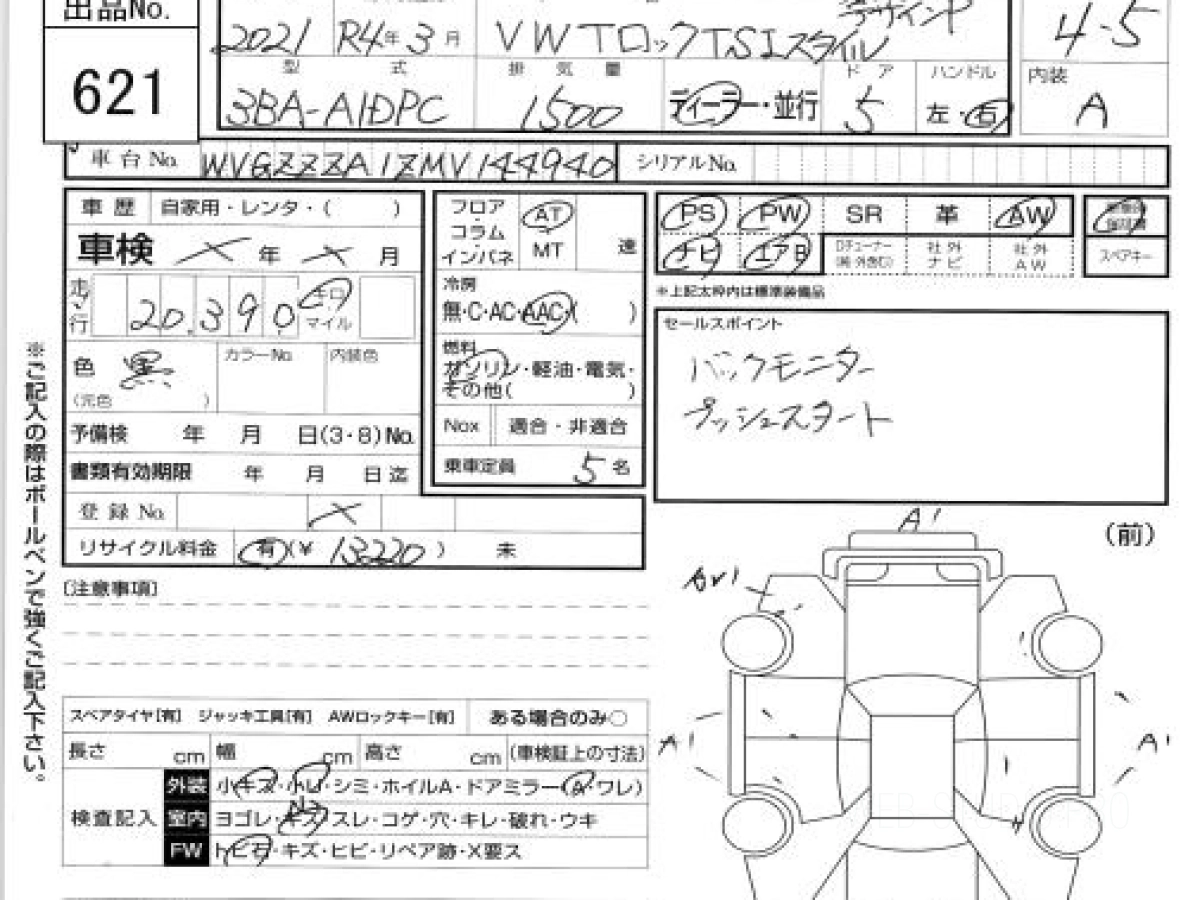 出品No.
621
2021 R4年3月 VW TロックTSIスタイル デザインP 4-5
型式 排気量 ドア ハンドル 内装
3BA-A1DPC 1500 ディーラー・並行 5 左・右 A
車台No. WVGZZZA1ZMV144940 シリアルNo.
車歴 自家用・レンタ・( )
車検 × 年 × 月
走行 20,390 キロ マイル
色 黒 (元色 ) カラーNo. 内装色
予備検 年 月 日(3・8)No.
書類有効期限 年 月 日迄
登録No. ×
リサイクル料金 有(¥ 13220 ) 未
フロア コラム インパネ AT MT 速
冷房
無・C・AC・AAC・( )
燃料
ガソリン・軽油・電気・
その他( )
Nox 適合・非適合
乗車定員 5名
PS PW SR 革 AW
ナビ エアB Dチューナー 社外ナビ 社外AW スペアキー
※上記太枠内は標準装備品
セールスポイント
バックモニター
プッシュスタート
※ご記入の際はボールペンで強くご記入下さい。
[注意事項]
スペアタイヤ[有] ジャッキ工具[有] AWロックキー[有] ある場合のみ○
長さ cm 幅 cm 高さ cm (車検証上の寸法)
検査記入
外装 小キズ・小U・シミ・ホイルA・ドアミラー(A・ワレ)
室内 ヨゴレ・キズ・スレ・コゲ・穴・キレ・破れ・ウキ
FW トビ石・キズ・ヒビ・リペア跡・X要ス
(前)
A1
A1
A1